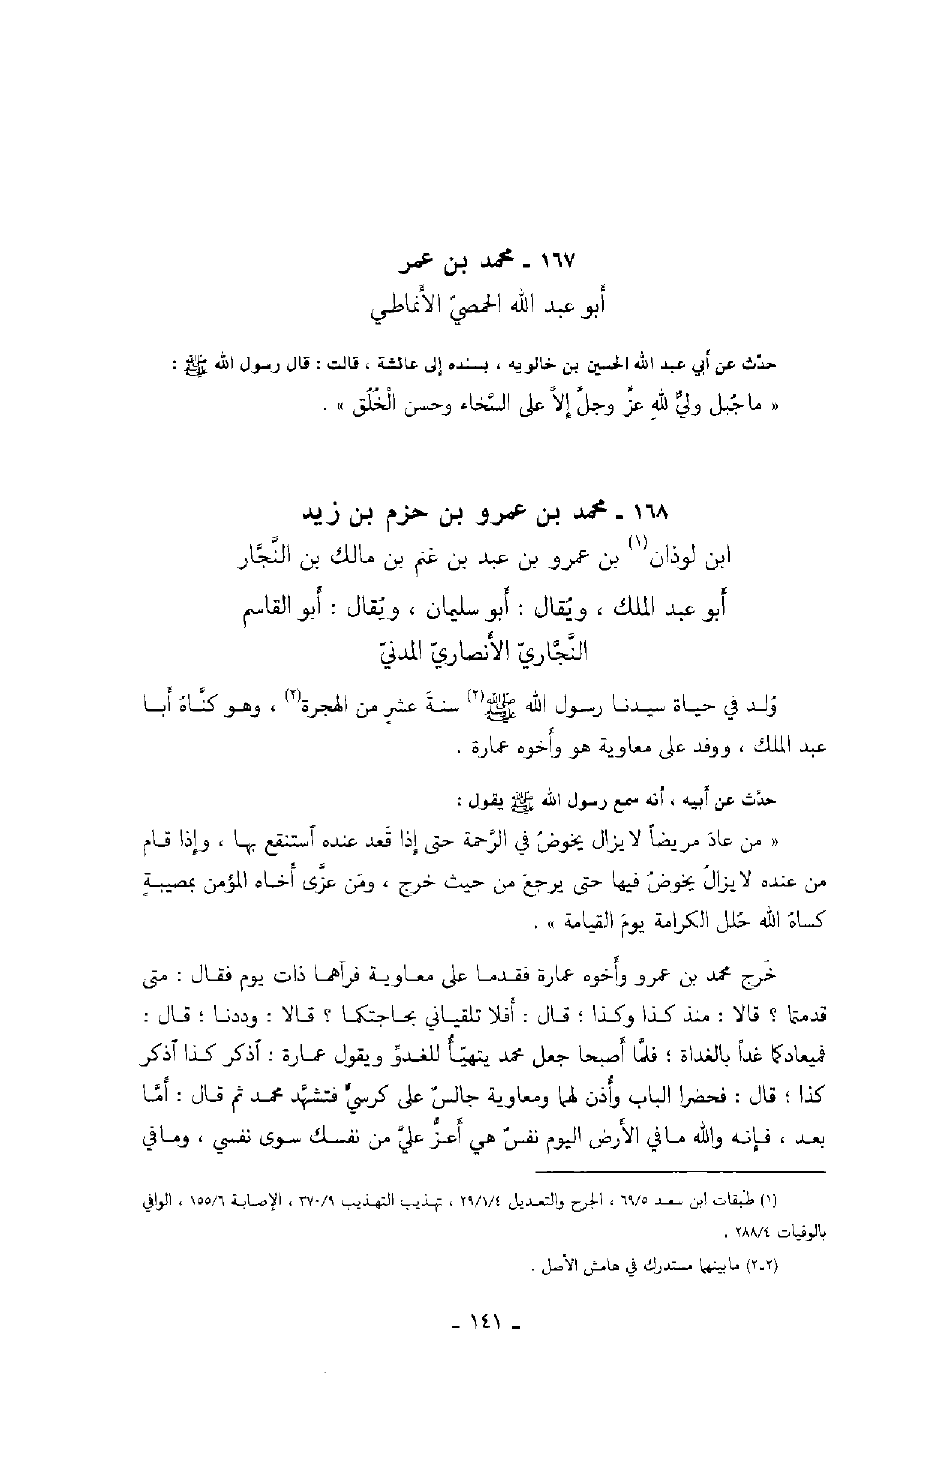 ١٦٧ ـ محمد بن عمر
أبو عبد الله الحمصيّ الأنماطي
حدّث عن أبي عبد الله الحسين بن خالويه ، بسنده إلى عائشة ، قالت : قال رسول الله ﷺ :
« ما جُبل وليٌّ للهِ عزَّ وجلَّ إلاَّ على السَّخاء وحسن الْخُلُق » .
١٦٨ ـ محمد بن عمرو بن حزم بن زيد
ابن لوذان(١) بن عمرو بن عبد بن غنم بن مالك بن النَّجَّار
أبو عبد الملك ، ويُقال : أبو سليمان ، ويُقال : أبو القاسم
النَّجَّاريّ الأنصاريّ المدنيّ
وُلـد في حيـاة سيـدنـا رسول الله ﷺ(٢) سنـةَ عشرٍ من الهجرة(٢) ، وهـو كنَّاهُ أبـا
عبد الملك ، ووفد على معاوية هو وأخوه عمارة .
حدَّث عن أبيه ، أنه سمع رسول الله ﷺ يقول :
« من عادَ مريضاً لا يزال يخوضُ في الرَّحمة حتى إذا قَعد عنده آستنقع بهـا ، وإذا قـام
من عنده لا يزالُ يخوضُ فيها حتى يرجعَ من حيث خرج ، ومَن عزَّى أخـاه المؤمن بمصيبـةٍ
كساهُ الله حُلل الكرامة يومَ القيامة » .
خَرج محمد بن عمرو وأخوه عمارة فقـدمـا على معـاويـة فرآهمـا ذات يوم فقـال : متى
قدمتما ؟ قالا : منذ كـذا وكـذا ؛ قـال : أفلا تلقيـاني بحـاجتكـا ؟ قـالا : وددنـا ؛ قـال :
فميعادكما غداً بالغداة ؛ فلمَّا أصبحا جعل محمد يتهيَّأُ للغدوِّ ويقول عمـارة : آذكر كـذا آذكر
كذا ؛ قال : فحضرا الباب وأُذن لهما ومعاوية جالسٌ على كرسيٍّ فتشهَّد محمـد ثم قـال : أمَّـا
بعـد ، فـإنـه والله مـا في الأرض اليوم نفسٌ هي أعـزُّ عليَّ من نفسـك سوى نفسي ، ومـا في
(١) طبقات ابن سعد ٦٩/٥ ، الجرح والتعديل ٢٩/١/٤ ، تهذيب التهذيب ٣٧٠/٩ ، الإصابة ١٥٥/٦ ، الوافي
بالوفيات ٢٨٨/٤ .
(٢ـ٢) ما بينهما مستدرك في هامش الأصل .
ـ ١٤١ ـ